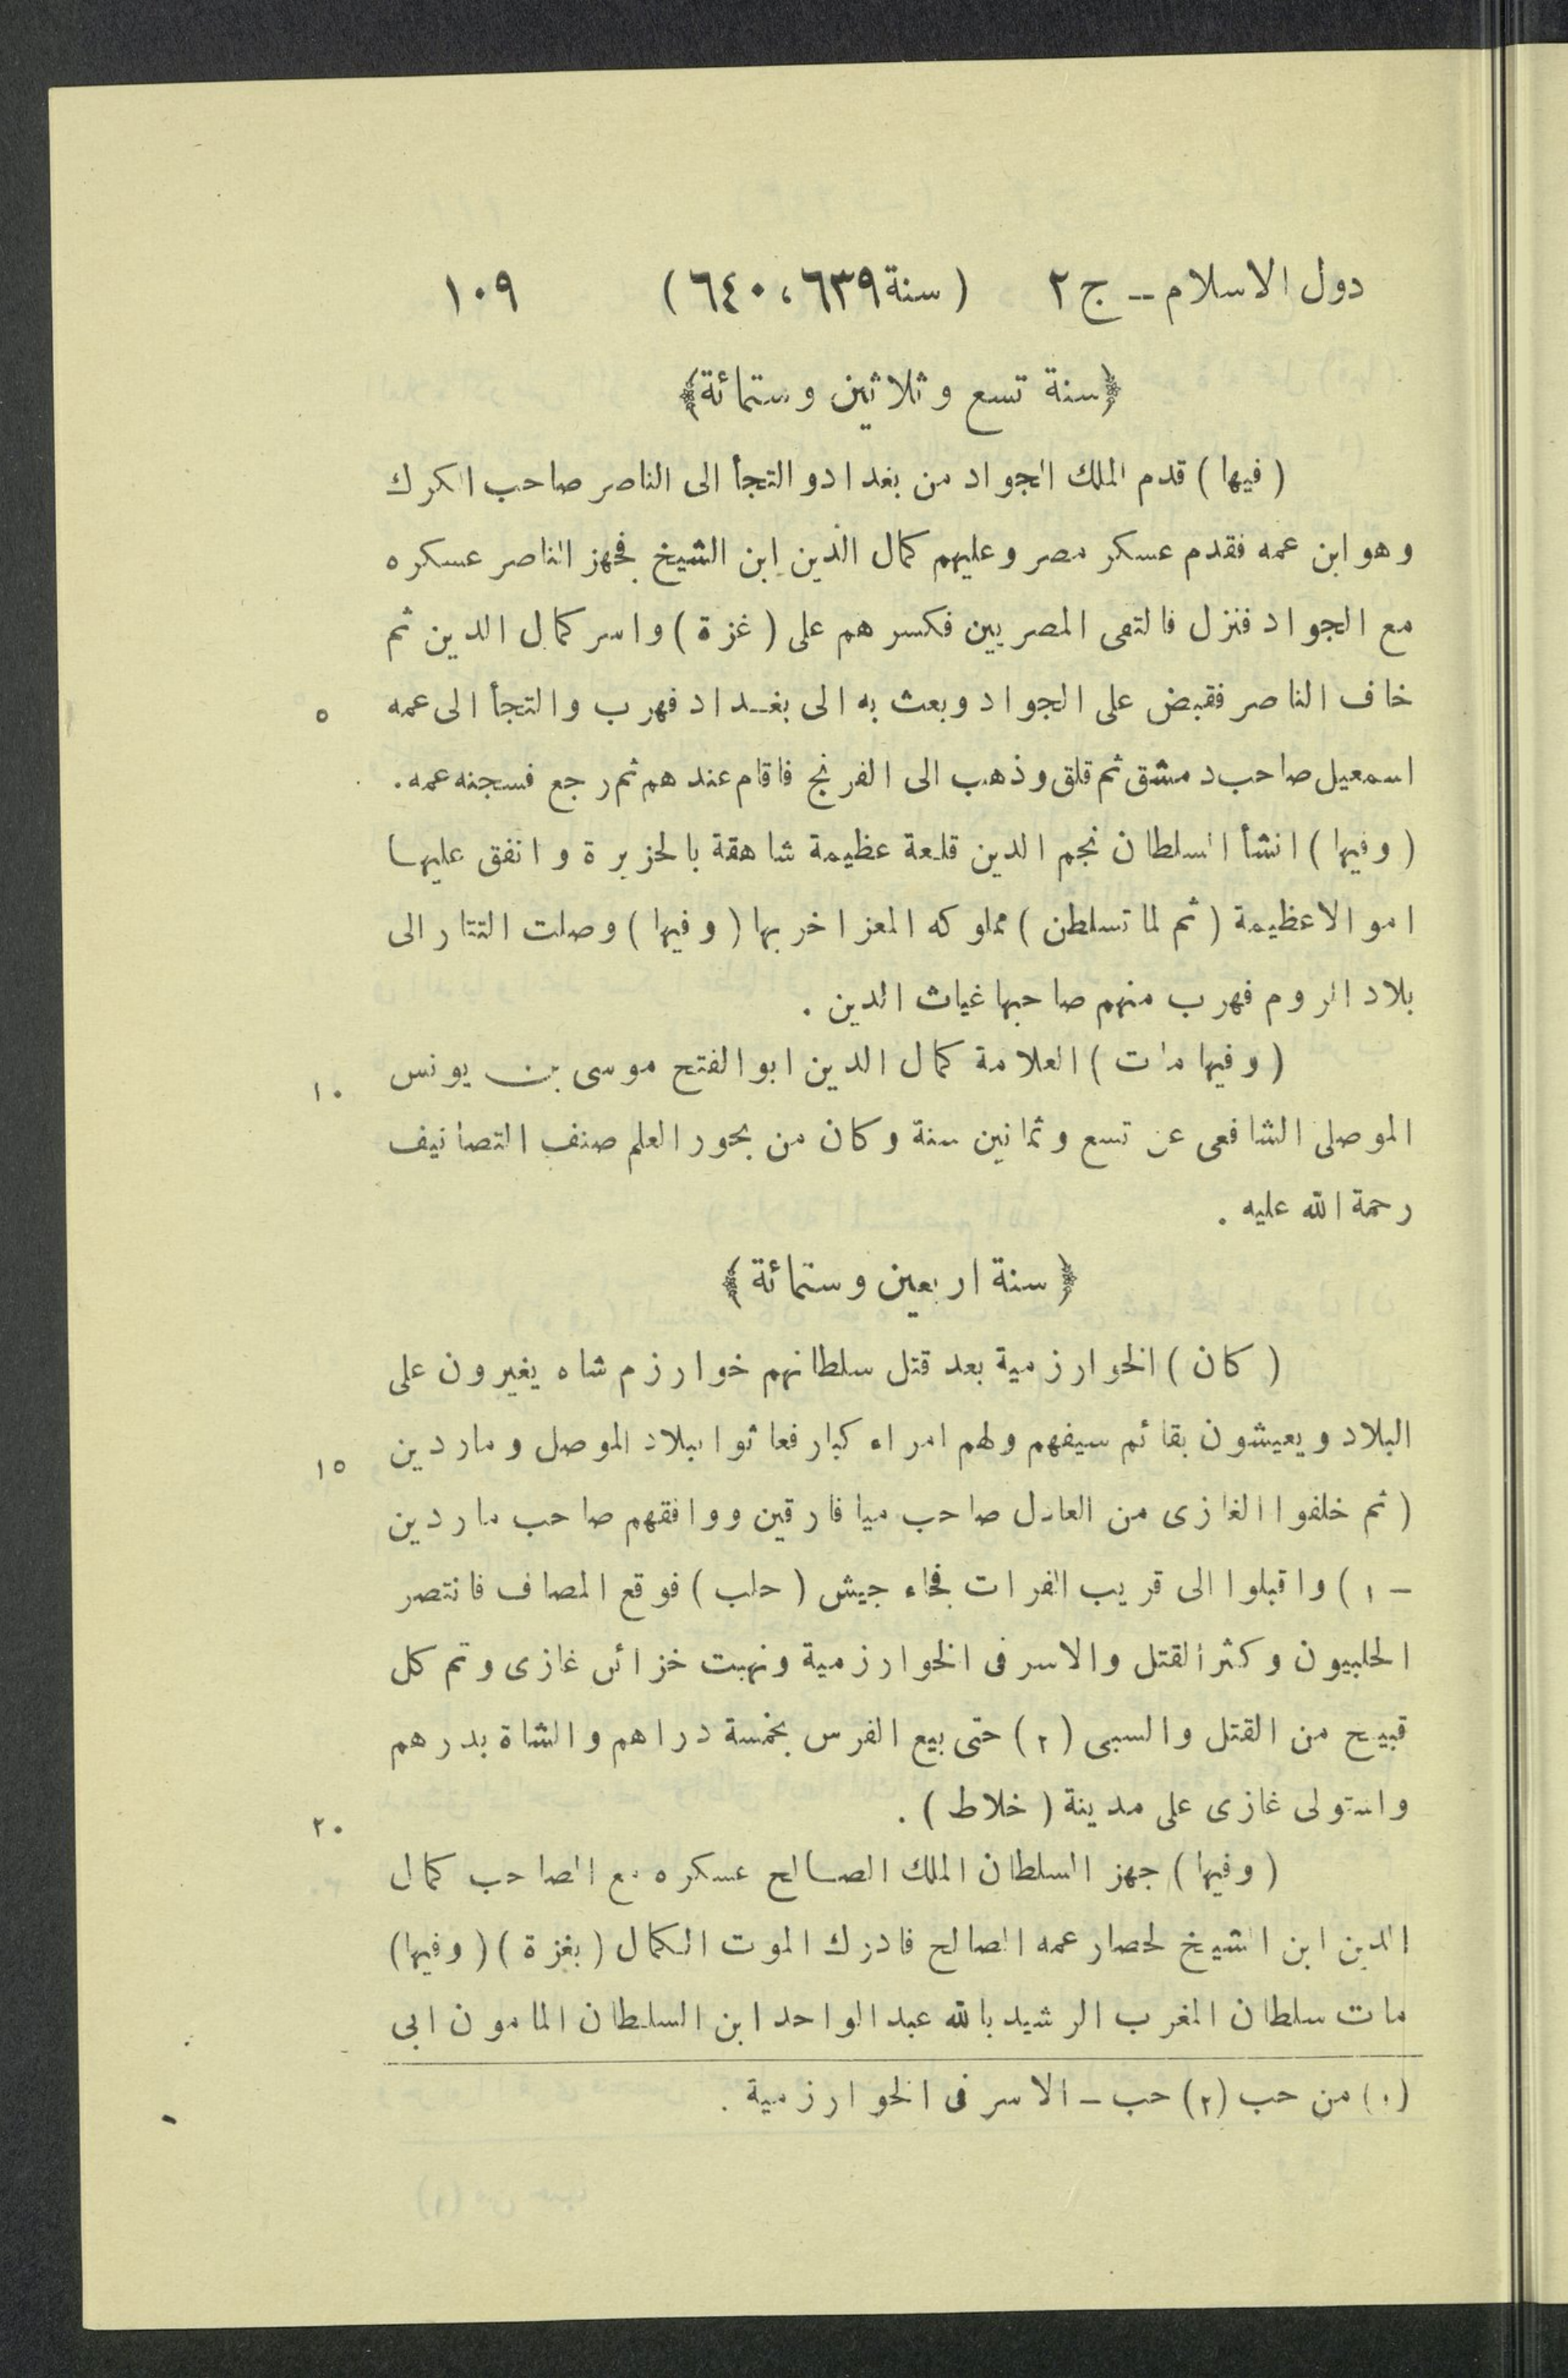 دول الاسلام ــ ج ٢ (سنة ٦٣٩، ٦٤٠) ١٠٩
﴿سنة تسع وثلاثين وستمائة﴾
(فيها) قدم الملك الجواد من بغداد والتجأ الى الناصر صاحب الكرك
وهو ابن عمه فقدم عسكر مصر وعليهم كمال الدين ابن الشيخ فجهز الناصر عسكره
مع الجواد فنزل فالتقى المصريين فكسرهم على (غزة) واسر كمال الدين ثم
خاف الناصر فقبض على الجواد وبعث به الى بغداد فهرب والتجأ الى عمه ٥
اسمعيل صاحب دمشق ثم قلق وذهب الى الفرنج فاقام عندهم ثم رجع فسجنه عمه.
(وفيها) انشأ السلطان نجم الدين قلعة عظيمة شاهقة بالجزيرة وانفق عليها
اموالا عظيمة (ثم لما تسلطن) مملوكه المعز اخربها (وفيها) وصلت التتار الى
بلاد الروم فهرب منهم صاحبها غياث الدين.
(وفيها مات) العلامة كمال الدين ابو الفتح موسى بن يونس ١٠
الموصلى الشافعى عن تسع وثمانين سنة وكان من بحور العلم صنف التصانيف
رحمة الله عليه.
﴿سنة اربعين وستمائة﴾
(كان) الخوارزمية بعد قتل سلطانهم خوارزم شاه يغيرون على
البلاد ويعيشون بقائم سيفهم ولهم امراء كبار فعاثوا ببلاد الموصل وماردين ١٥
(ثم خلفوا الغازى من العادل صاحب ميافارقين ووافقهم صاحب ماردين
ـ ١) واقبلوا الى قريب الفرات فجاء جيش (حلب) فوقع المصاف فانتصر
الحلبيون وكثر القتل والاسر فى الخوارزمية ونهبت خزائن غازى وتم كل
قبيح من القتل والسبى (٢) حتى بيع الفرس بخمسة دراهم والشاة بدرهم
واستولى غازى على مدينة (خلاط). ٢٠
(وفيها) جهز السلطان الملك الصالح عسكره مع الصاحب كمال
الدين ابن الشيخ لحصار عمه الصالح فادرك الموت الكمال (بغزة) (وفيها)
مات سلطان المغرب الرشيد بالله عبد الواحد ابن السلطان المامون ابى
(١) من حب (٢) حب ـ الاسر فى الخوارزمية.